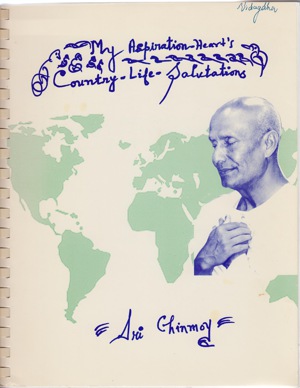 Vidagdha
My Aspiration-Heart's
Country-Life-Salutations
Sri Chinmoy